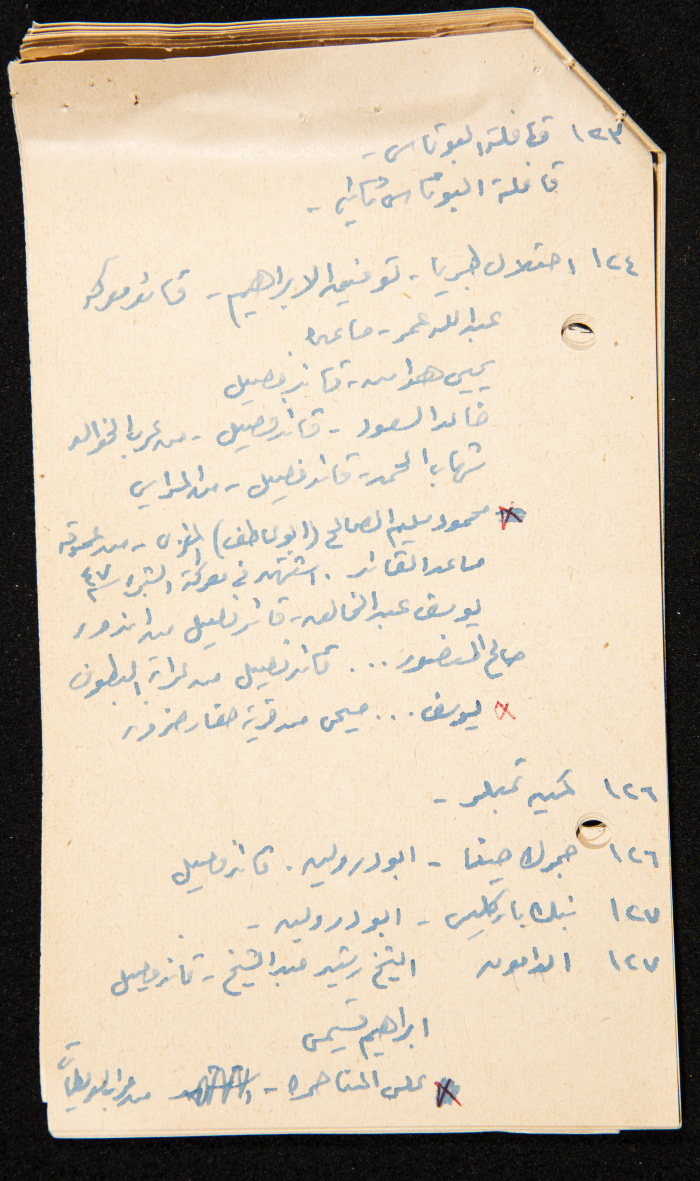 ١٢٣ قافلة البوتاس -
قافلة البوتاس ثانية -
١٢٤ احتلال طبريا - توفيق الابراهيم - قائد معركة
عبدالله عمر - ساعده
يحيى هواش - قائد فصيل
خالد السعود - قائد فصيل - من عرب الخوالد
شهاب المحمد - قائد فصيل - من
محمود سليم الصالح (ابو عاطف) المغربي - من عموقه
ساعد القائد . استشهد في معركة الشجرة ٤٧
يوسف عبد الخالق - قائد فصيل من اندور
صالح المنصور ... قائد فصيل من عرابة البطوف
يوسف ... صبحي من قرية
١٢٦ كمين تمبلر -
١٢٦ جمرك حيفا - ابو درولين . قائد فصيل
١٢٧ بنك باركليس - ابو درولين -
١٢٧ الدامون الشيخ رشيد عبد الشيخ - قائد فصيل
ابراهيم
علي المناصره - من عرب